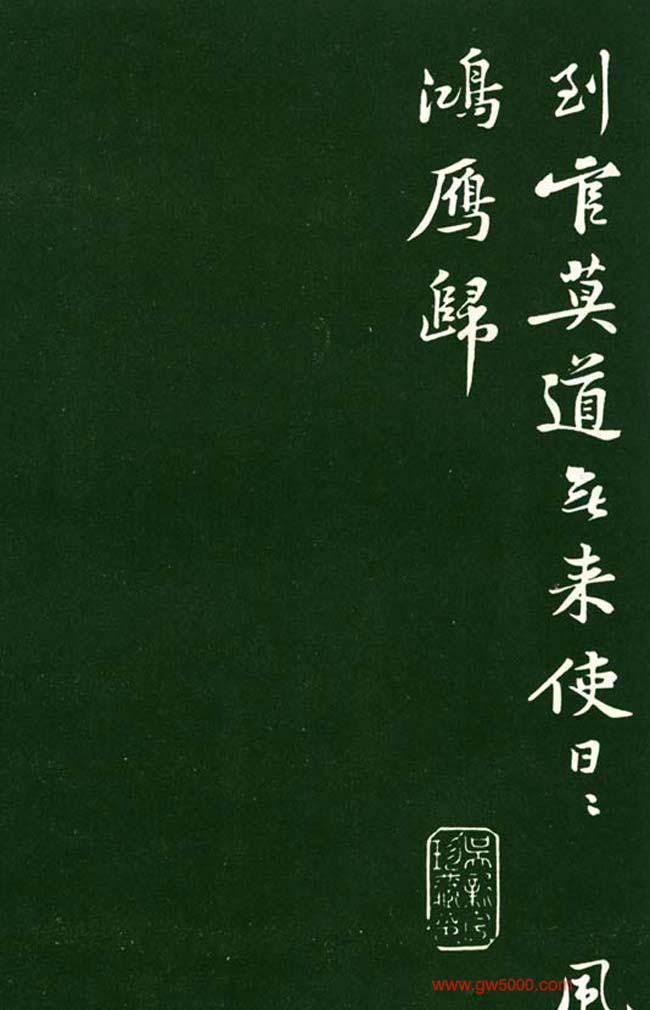 到官莫道无来使日〻風
鴻鴈歸
www.gw5000.com